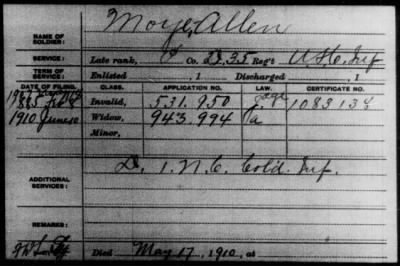 NAME OF SOLDIER: Moye, Allen
SERVICE: Late rank, Co. D, 35 Reg't U.S.C. Inf
TERM OF SERVICE: Enlisted , 1 Discharged , 1
DATE OF FILING. CLASS. APPLICATION NO. LAW. CERTIFICATE NO.
1885 Invalid, 531.950 1083138
1910 June Widow, 943.994 Pa
Minor,
ADDITIONAL SERVICES: D. 1. N.C. Cold. Inf.
REMARKS:
Died May 17, 1910, at